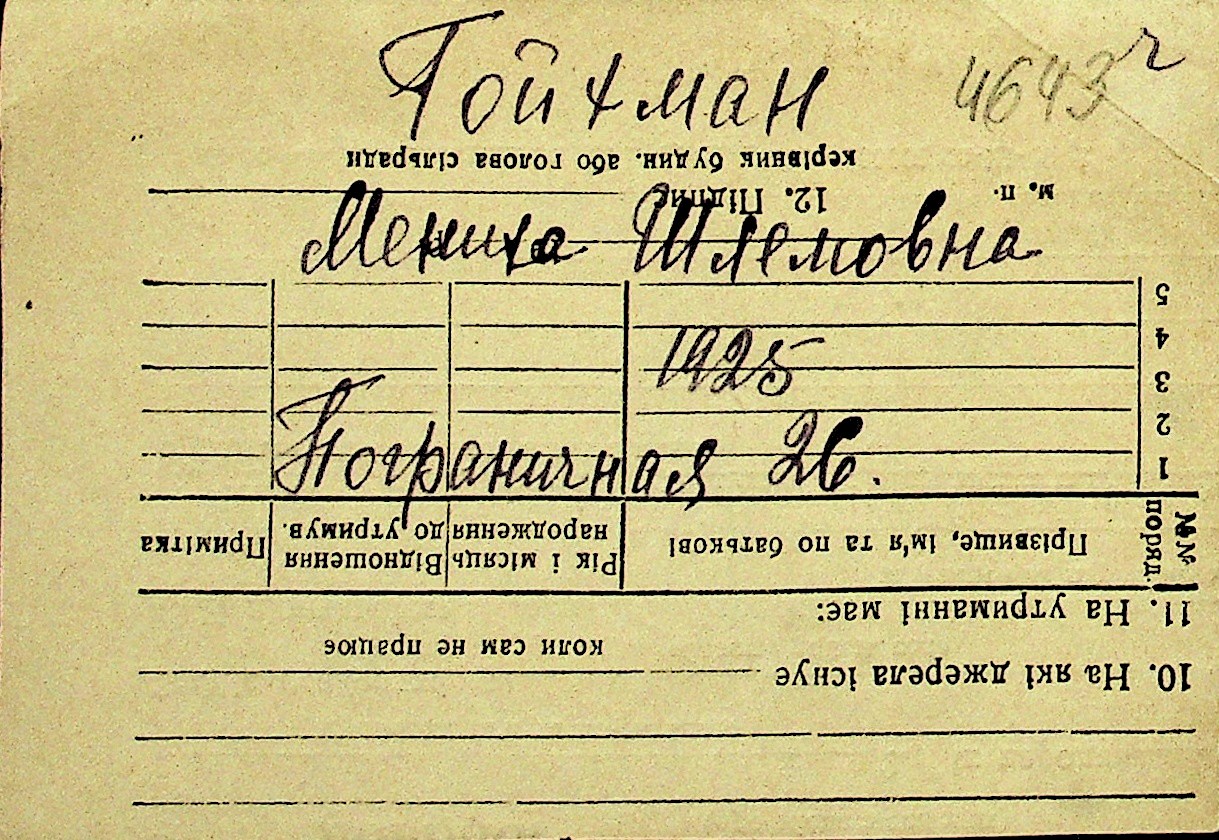 Гойхман 4643 г
Мениха Шлемовна
1925
Пограничная 26.
10. На які джерела існує
коли сам не працює
11. На утриманні має:
№№ поряд. Прізвище, ім'я та по батькові Рік і місяць народження Відношення до утримув. Примітка
1
2
3
4
5
м. п. 12. Підпис
керівник будин. або голова сільради